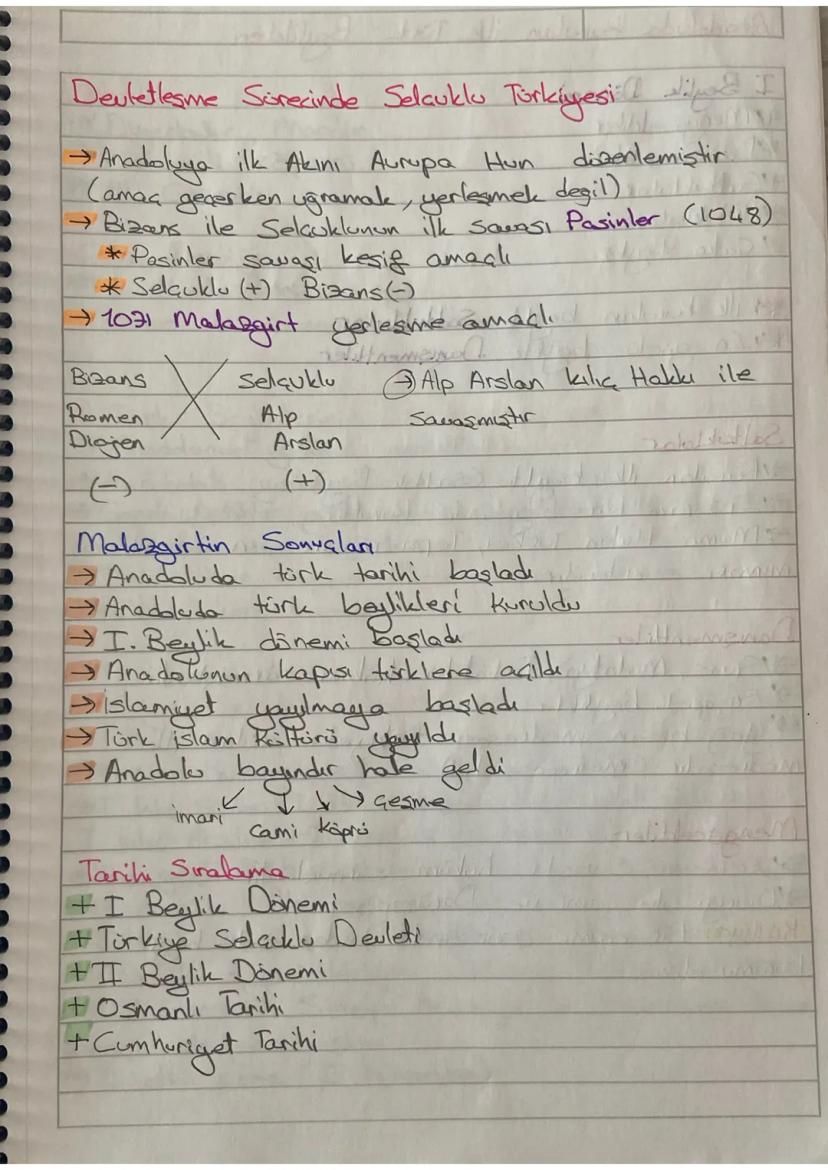 Devletleşme Sürecinde Selçuklu Türkiyesi
→ Anadoluya ilk Akını Avrupa Hun düzenlemiştir
(amaç geçerken uğramak, yerleşmek değil)
→ Bizans ile Selçuklunun ilk savaşı Pasinler (1048)
* Pasinler savaşı keşif amaçlı
* Selçuklu (+) Bizans (-)
→ 1071 Malazgirt yerleşme amaçlı
Bizans Selçuklu → Alp Arslan kılıç Hakkı ile
Romen Alp savaşmıştır
Diojen Arslan
(-) (+)
Malazgirtin Sonuçları
→ Anadoluda türk tarihi başladı
→ Anadoluda türk beylikleri kuruldu
→ I. Beylik dönemi başladı
→ Anadolunun kapısı türklere açıldı
→ islamiyet yayılmaya başladı
→ Türk islam kültürü yayıldı
→ Anadolu bayındır hale geldi
imari ↙ ↓ ↘ → Çeşme
cami köprü
Tarihi Sıralama
+ I Beylik Dönemi
+ Türkiye Selçuklu Devleti
+ II Beylik Dönemi
+ Osmanlı Tarihi
+ Cumhuriyet Tarihi